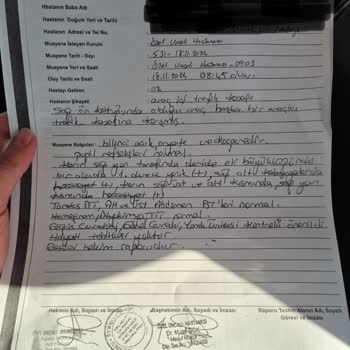 Hastanın Baba Adı
Hastanın Doğum Yeri ve Tarihi
Hastanın Adresi ve Tel No.
Muayene İsteyen Kurum Özel Uncalı Hastanesi
Muayene Tarihi - Sayı
Muayene Yeri ve Saati Özel Uncalı Hastanesi - 09:03
Olay Tarihi ve Saati 18.11.2024 08:45
Hastayı Getiren 112
Hastanın Şikayeti araç içi trafik kazası
Sağ ön koltuğunda olduğu araç başka bir araçla
trafik kazasına karışmış.
Muayene Bulguları bilinci açık, oryante ve koopere
pupil refleksleri normal.
Karın sağ yan tarafında deride el büyüklüğünde
bir alanda 1. derece yanık (+), sağ alt kadranlarda
hassasiyet (+), karın sağ üst ve alt kısmında, sağ yan
kısmında hassasiyet (+)
Toraks BT, Alt ve Üst Abdomen BT'leri normal.
Hemogram, Biyokimya, TİT normal.
Göğüs Cerrahisi, Genel Cerrahi, Yanık Ünitesi kontrolü önerildi
Hayati tehlikesi yoktur.
Geçici hekim raporudur.
Hekimin Adı, Soyadı ve İmzası
Başhekimin Adı, Soyadı ve İmzası
Raporu Teslim Alanın Adı, Soyadı
Görevi ve İmzası
ÖZEL UNCALI HASTANESİ